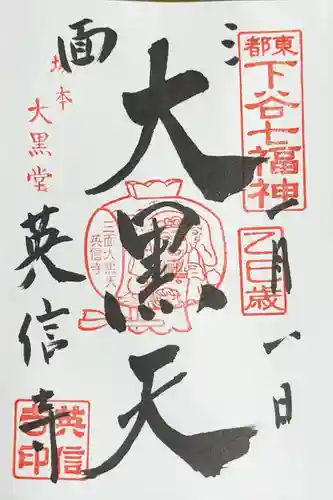 三
面
大黒天
東都
下谷七福神
乙巳歳
一月八日
三面大黒天
英信寺
坂本
大黒堂
英信寺
英信
寺印